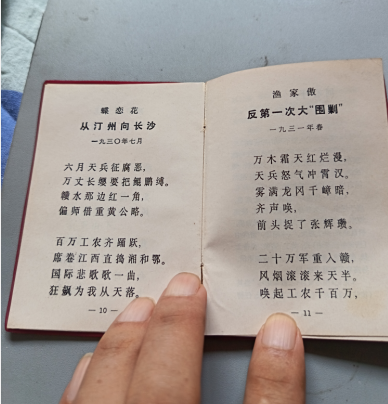 蝶恋花
从汀州向长沙
一九三〇年七月
六月天兵征腐恶，
万丈长缨要把鲲鹏缚。
赣水那边红一角，
偏师借重黄公略。
百万工农齐踊跃，
席卷江西直捣湘和鄂。
国际悲歌歌一曲，
狂飙为我从天落。
— 10 —
渔家傲
反第一次大“围剿”
一九三一年春
万木霜天红烂漫，
天兵怒气冲霄汉。
雾满龙冈千嶂暗，
齐声唤，
前头捉了张辉瓒。
二十万军重入赣，
风烟滚滚来天半。
唤起工农千百万，
— 11 —